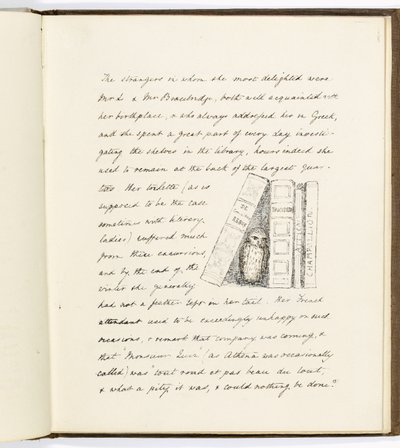 The strangers in whom she most delighted were
Mrs & Mr Bracebridge, both well acquainted with
her birthplace, & who always addressed her in Greek,
and she spent a great part of every day investi-
gating the shelves in the library, hours indeed she
used to remain at the back of the largest quar-
tos. Her toilette (as is
supposed to be the case
sometimes with literary
ladies) suffered much
from these excursions,
and by the end of the
winter she generally
had not a feather left in her tail. Her French
attendant used to be exceedingly unhappy on such
occasions, & remark that company was coming, &
that 'Monsieur (as Athena was occasionally
called) was tout rond et pas beau du tout,
& what a pity it was, & could nothing be done?
CHAMPOLLION